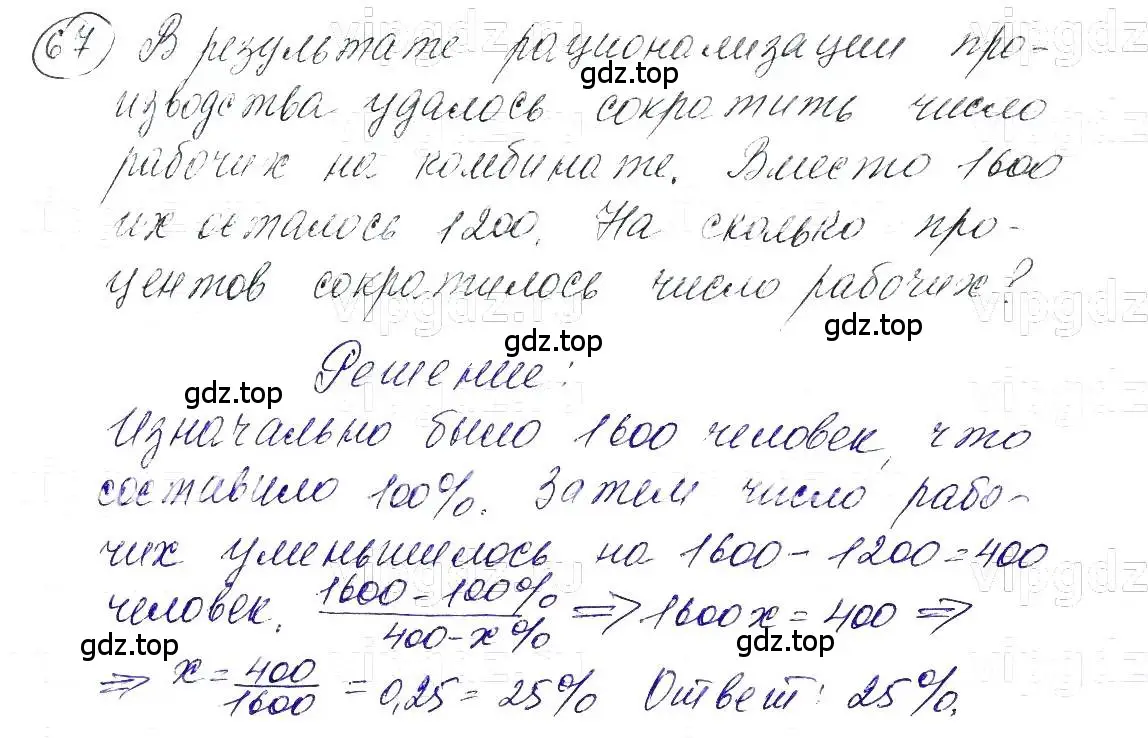 67 В результате рационализации про-
gdz.top
изводства удалось сократить число
рабочих на комбинате. Вместо 1600
их осталось 1200. На сколько про-
центов сократилось число рабочих?
vipgdz.ru
vipgdz.ru
gdz.top
gdz.top
Решение:
gdz.top
Изначально было 1600 человек, что
составило 100%. Затем число рабо-
чих уменьшилось на 1600 - 1200 = 400
человек. 1600 - 100% / 400 - x% ⇒ 1600x = 400 ⇒
gdz.top
gdz.top
⇒ x = 400/1600 = 0,25 = 25% Ответ: 25%.